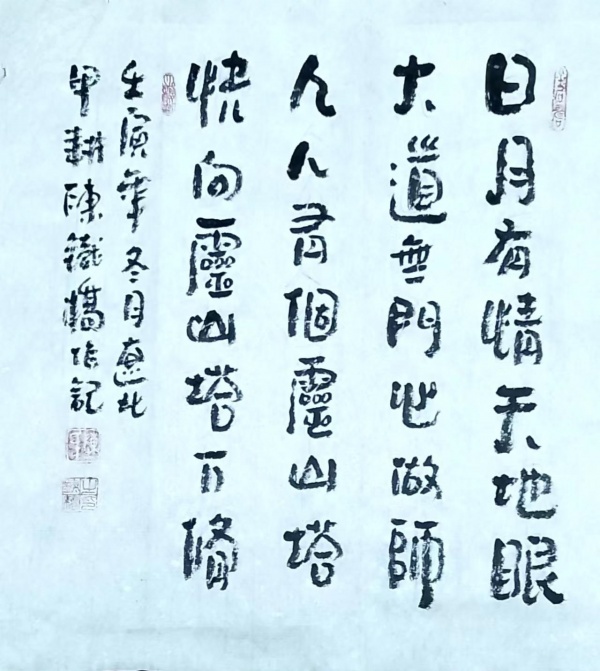 日月有情天地眼
大道無門心做師
人人有個靈山塔
快向靈山塔下脩
壬寅年冬月遼北
甲耕陳鐵橋作記